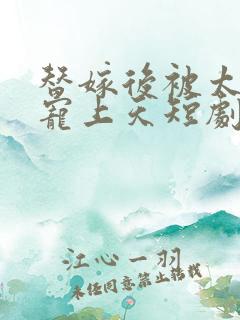 替嫁後被太
寵上天短劇
江心一羽
未经同意禁止转载